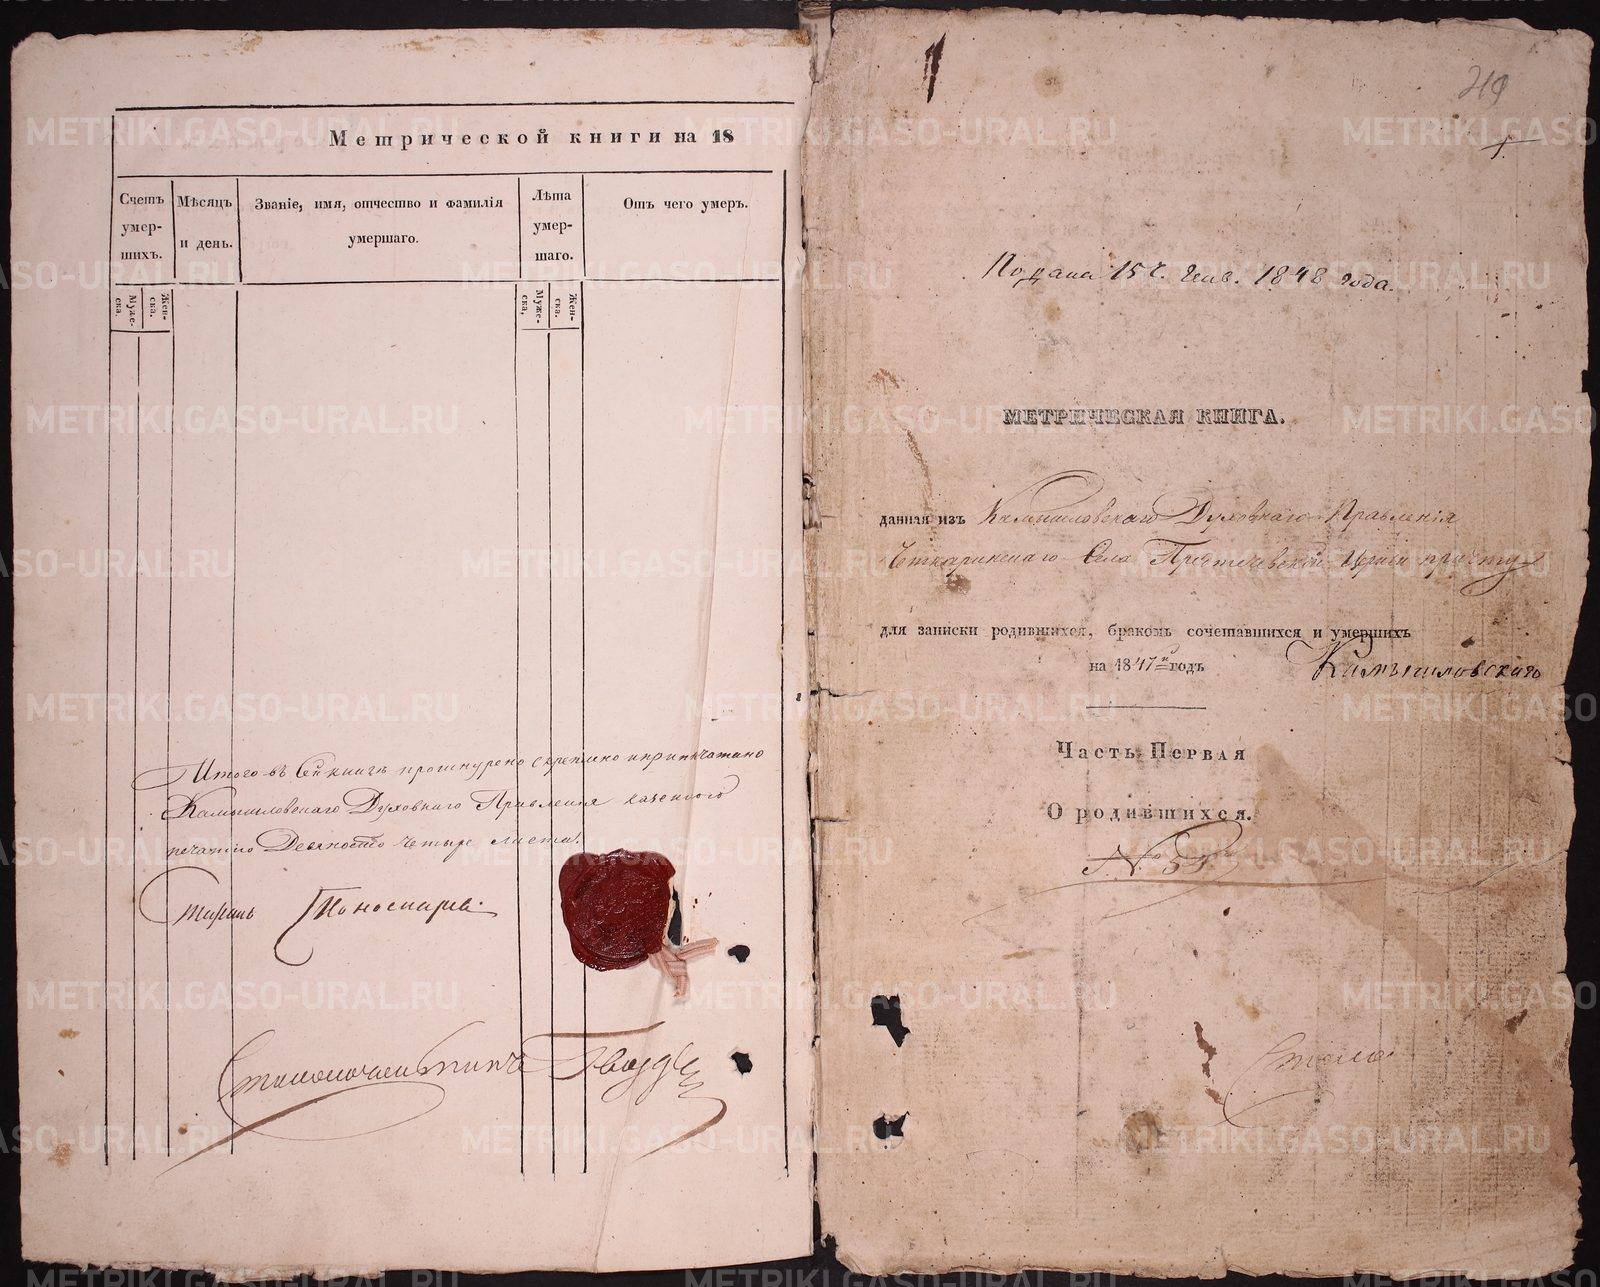 Метрической книги на 18
Счетъ умер- шихъ.
Мѣсяцъ и день.
Званіе, имя, отчество и фамилія умершаго.
Лѣта умер- шаго.
Отъ чего умеръ.
Муже- ска.
Жен- ска.
Муже- ска,
Жен- ска.
Итого въ сей книгѣ прошнурено скреплено и припечатано
Камышловскаго Духовнаго Правленія казенного
печатію Девяносто четыре листа.
219
1.
Подана 15 г. Генв. 1848 года.
МЕТРИЧЕСКАЯ КНИГА.
данная изъ Камышловскаго Духовнаго Правленія
Четкаринскаго Села Предтечевской Церкви причту
для записки родившихся, бракомъ сочетавшихся и умершихъ
на 1847й годъ
Камышловскаго
Часть Первая
О родившихся.
METRIKI.GASO-URAL.RU